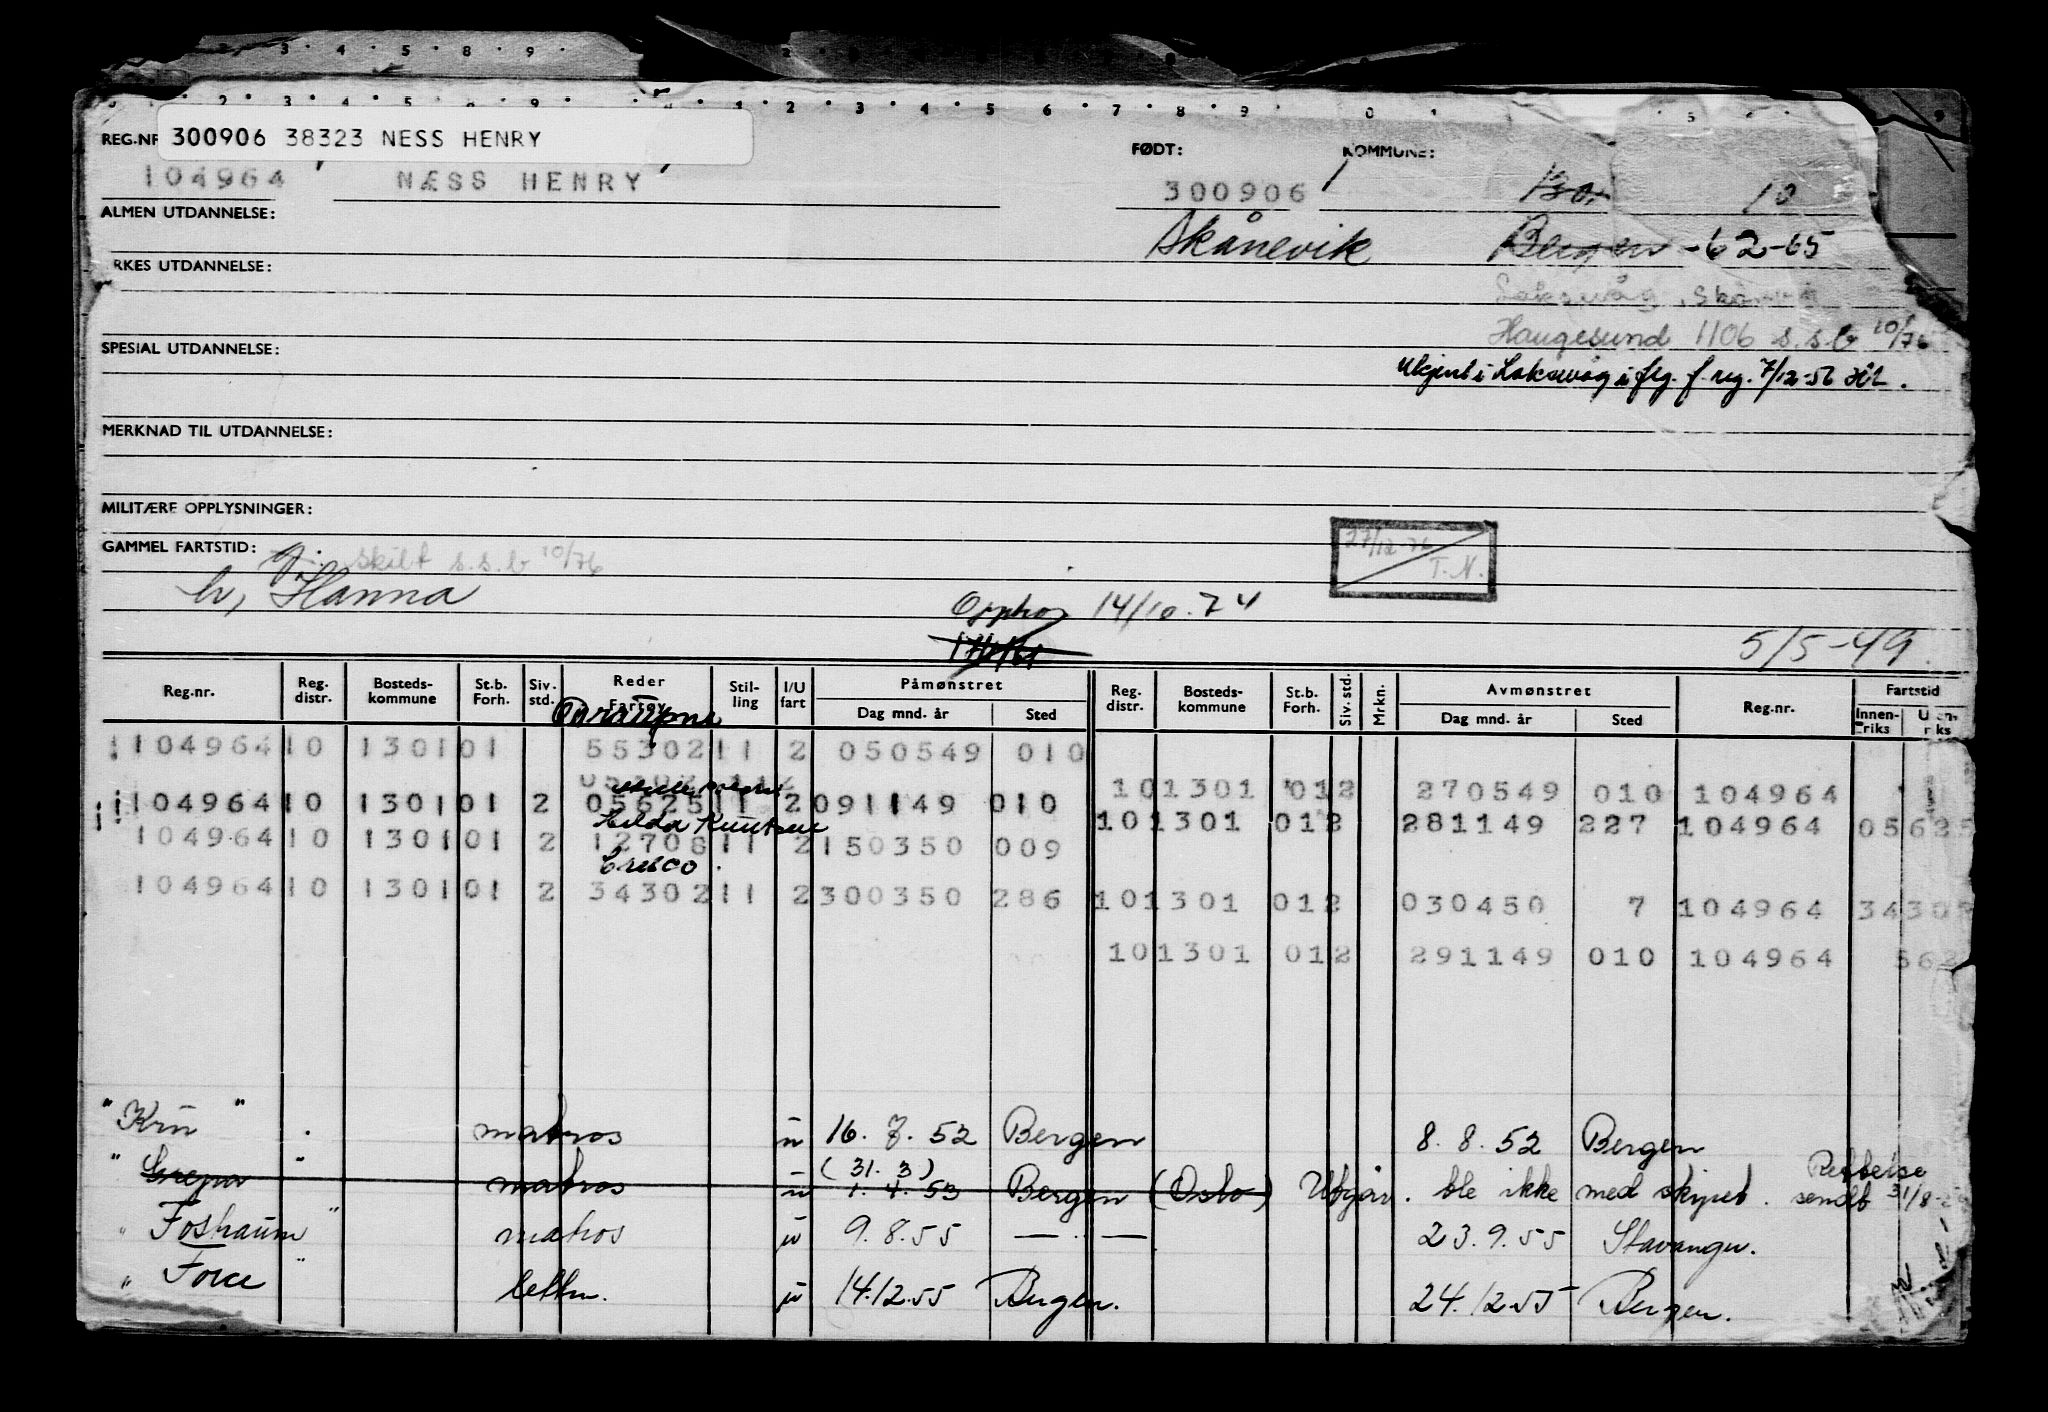 2 3 4 5 8 9
2 3 4 5 9 1 2 3 4 5 6 7 8 9 0 1 5
REG.NR 300906 38323 NESS HENRY FØDT: KOMMUNE:
104964 NÆSS HENRY 300906 10
ALMEN UTDANNELSE: Skånevik Bergen -62-65
RKES UTDANNELSE:
Haugesund 1106 s.s.b 10/76
SPESIAL UTDANNELSE: Ukjent i Laksevåg i flg. f. reg. 7/12-56
MERKNAD TIL UTDANNELSE:
MILITÆRE OPPLYSNINGER:
27/12-76
T.N.
GAMMEL FARTSTID: g: skilt s.s.b 10/76
h, Hanna
Opphør 14/10.74
5/5-49
Reg.nr. Reg. distr. Bosteds- kommune St.b. Forh. Siv. std. Reder Fartøy Stil- ling I/U fart Påmønstret Dag mnd. år Sted Reg. distr. Bosteds- kommune St.b. Forh. Siv. std. Mrkn. Avmønstret Dag mnd. år Sted Reg.nr. Fartstid Innen- riks
104964 10 1301 01 55302 11 2 050549 010
10 1301 01 2 270549 010 104964
104964 10 1301 01 2 05625 11 2 091149 010
Hilda Knutsen 10 1301 01 2 281149 227 104964 05625
104964 10 1301 01 2 12708 11 2 150350 009
Cresco
104964 10 1301 01 2 34302 11 2 300350 286 10 1301 01 2 030450 7 104964 3430
10 1301 01 2 291149 010 104964 562
" Krin " matros u 16. 7. 52 Bergen 8. 8. 52 Bergen
(31. 3)
" Grepa " matros u 1. 4. 53 Bergen (Oslo) Utgår. ble ikke med skipet. sendt 31/8-
" Foshaun " matros u 9. 8. 55 — " — 23. 9. 55 Stavanger.
" Force " lettm. u 14.12.55 Bergen. 24.12.55 Bergen.